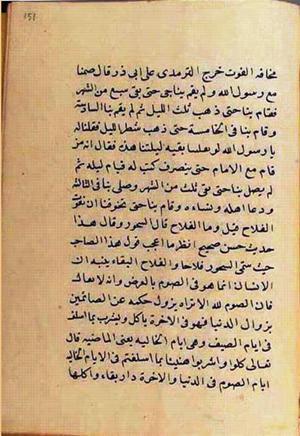 ١٥١
مخافة الفوت خرج الترمذي عن ابي ذر قال صمنا
مع رسول الله ولم يقم بنا حتى بقى سبع من الشهر
فقام بنا حتى ذهب ثلث الليل ثم لم يقم بنا السادسة
وقام بنا فى الخامسة حتى ذهب شطر الليل فقلنا له
يا رسول الله لو نفلتنا بقيه ليلتنا هذه فقال انه من
قام مع الامام حتى ينصرف كتب له قيام ليلة ثم
لم يصل بنا حتى بقى ثلث من الشهر وصلى بنا فى الثالثة
ودعا اهله ونساءه وقام بنا حتى تخوفنا ان يفوتنا
الفلاح قيل وما الفلاح قال السحور وقال هذا
حديث حسن صحيح انظر ما اعجب قول هذا الصاحب
حيث سمى السحور فلاحا والفلاح البقاء ينبه ان
الانسان انما هو فى الصوم بالعرض وانه لا بقاء له
فان الصوم لله الا تراه يزول حكمه عن الصائمين
بزوال الدنيا فهو فى الاخرة ياكل ويشرب بما اسلف
فى ايام الصيف وهى ايام الخاليه يعنى الماضيه قال
تعالى كلوا واشربوا هنيئا بما اسلفتم فى الايام الخاليه
ايام الصوم فى الدنيا والاخرة دار بقاء واكلها